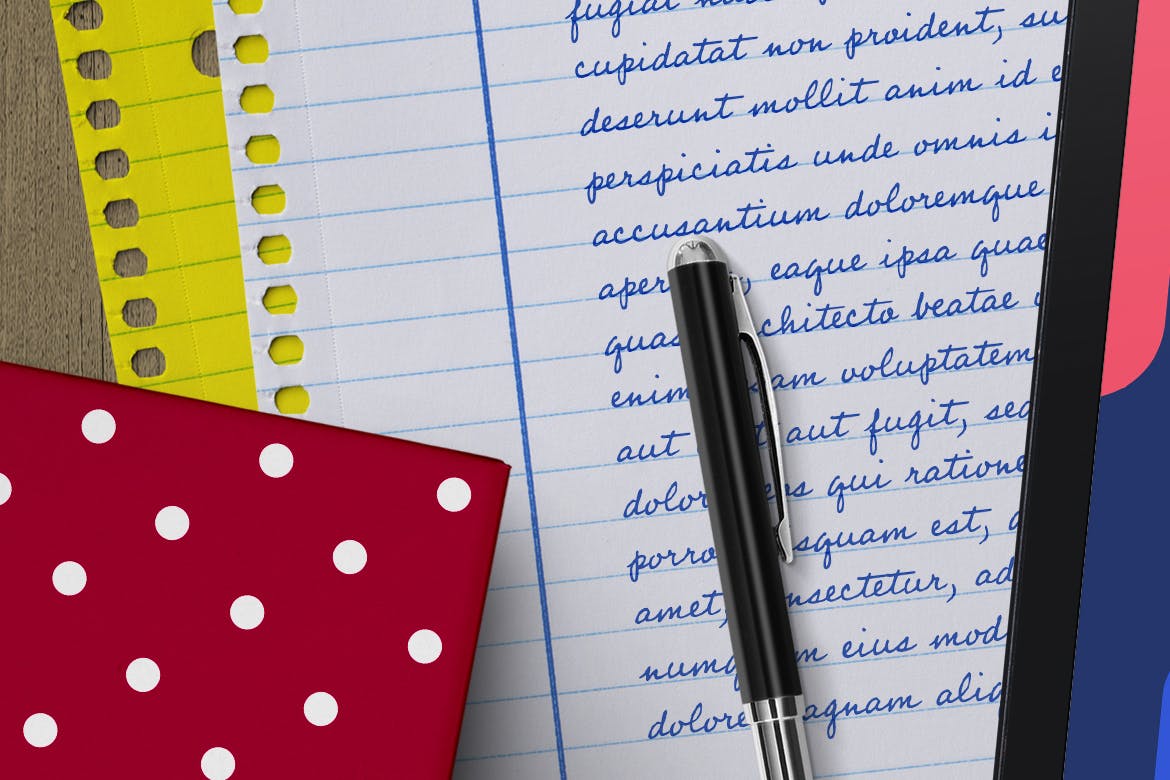 fugiat
cupidatat non proident, su
deserunt mollit anim id e
perspiciatis unde omnis i
accusantium doloremque
aper , eaque ipsa quae
quas chitecto beatae
enim am voluptatem
aut t aut fugit, sed
dolor eos qui ratione
porro squam est,
amet, nsectetur, ad
numq m eius mod
dolore agnam aliq